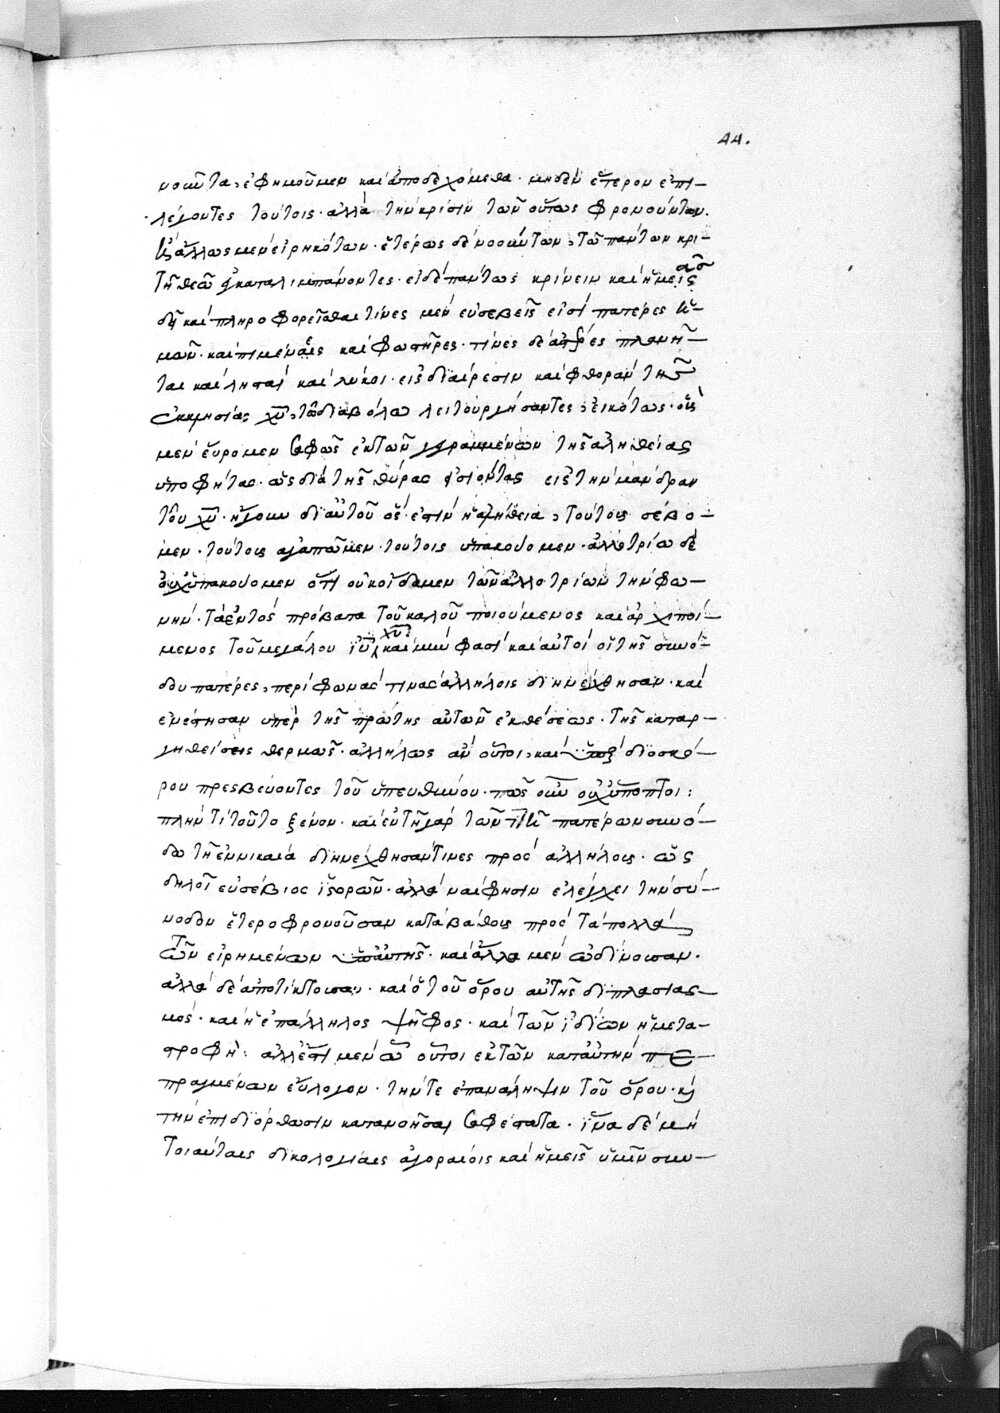 44.
νοοῦντα, εὐφημοῦμεν καὶ ἀποδεχόμεθα· μηδὲν ἕτερον ἐπι-
λέγοντες τούτοις· ἀλλὰ τὴν κρίσιν τῶν οὕτως φρονούντων.
ἢ ἄλλως μὲν εἰρηκότων· ἑτέρως δὲ νοούντων, τῶ πάντων κρι-
τῆ θεῶ καταλιμπάνοντες· εἰ δὲ πάντως κρίνειν καὶ ἡμᾶς
δεῖ καὶ πληροφορεῖσθαι τίνες μὲν εὐσεβεῖς εἰσὶ πατέρες ἡ-
μῶν· καὶ ποιμένες καὶ φωστῆρες· τίνες δὲ πλανῆ-
ται καὶ λησταὶ καὶ λύκοι· εἰς διαίρεσιν καὶ φθορὰν τῆς
ἐκκλησίας χῦ, τῶ διαβόλω λειτουργήσαντες, εἰκότως· οὓς
μὲν εὕρομεν σαφῶς ἐκ τῶν γεγραμμένων τῆς ἀληθείας
ὑποφήτας· ὡς διὰ τῆς θύρας εἰσιόντας εἰς τὴν μάνδραν
τοῦ χῦ· ἤγουν δι αὐτοῦ ὅς ἐστιν ἡ ἀλήθεια, τούτους σέβο-
μεν· τούτους ἀγαπῶμεν· τούτοις ὑπακούομεν· ἀλλοτρίω δὲ
οὐχ ὑπακούομεν ὅτι οὐκ οἴδαμεν τῶν ἀλλοτρίων τὴν φω-
νήν· τὰ ἐντὸς πρόβατα τοῦ καλοῦ ποιούμενος καὶ ἀρχιποί-
μενος τοῦ μεγάλου ἰῦ χῦ· καὶ μὴν φασὶ καὶ αὐτοὶ οἱ τῆς συνό-
δου πατέρες, περὶ φωνάς τινας ἀλλήλοις διηνέχθησαν· καὶ
ἐνέστησαν ὑπὲρ τῆς πρώτης αὐτῶν ἐκθέσεως· τῆς καταρ-
γηθείσης θερμῶς· ἀλλήλως αὖ οὗτοι, καὶ ὑπὲρ διοσκό-
ρου πρεσβεύοντες τοῦ ὑπευθύνου· πῶς οὖν οὐχ ὕποπτοι:
πλὴν τί τοῦτο ξένον· καὶ ἐν τῆ γὰρ τῶν τιη πατέρων συνό-
δω τῆ ἐν νικαία διηνέχθησάν τινες πρὸς ἀλλήλους· ὡς
δηλοῖ εὐσέβιος ἱστορῶν· ἀλλὰ καὶ φησὶν ἐλέγχει τὴν σύ-
νοδον ἑτεροφρονοῦσαν κατὰ βάθους πρὸς τὰ πολλὰ
τῶν εἰρημένων ὑπ αὐτῆς· καὶ ἄλλα μὲν ὠδίνουσαν·
ἀλλὰ δὲ ἀποτίκτουσαν· καὶ ὁ τοῦ ὅρου αὐτῆς διπλασιασ-
μός· καὶ ἡ ἐπάλληλος ψῆφος· καὶ τῶν ἰδίων ἡ μετα-
στροφή: ἀλλ ἔστι μὲν ὦ οὗτοι ἐκ τῶν κατ αὐτὴν πε-
πραγμένων εὔλογον· τήν τε ἐπανάληψιν τοῦ ὅρου· καὶ
τὴν ἐπιδιόρθωσιν κατανοῆσαι σαφέστατα· ἵνα δὲ μὴ
τοιαύταις δικολογίαις ἀγοραίοις καὶ ἡμεῖς ὑμῖν συν-